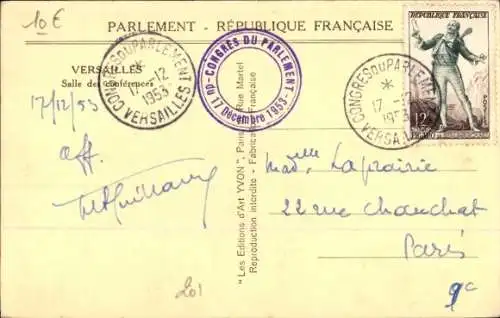 10 €
PARLEMENT - RÉPUBLIQUE FRANÇAISE
RÉPUBLIQUE FRANÇAISE
VERSAILLES
Salle des conférences
CONGRÈS DU PARLEMENT
12
1953
VERSAILLES
CONGRÈS DU PARLEMENT
17 Décembre 1953
CONGRÈS DU PARLEMENT
17 - 12
1953
VERSAILLES
12
17/12/53
aff.
Mad.elle Laprairie
22 rue Chauchat
Paris
9e
"Les Editions d'Art YVON", Rue Martel
Reproduction interdite - Fabrication Française
201